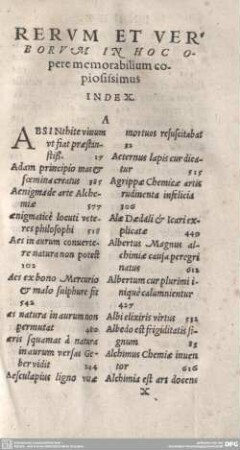 RERVM ET VER
BORVM IN HOC O-
pere memorabilium co
piosissimus
INDEX.
A
ABSINthite vinum
vt fiat præstin-
stist. 17
Adam principio mas et
fœmina creatus 585
Aenigma de arte Alche-
miæ 577
ænigmaticè locuti vete-
res philosophi 518
Aes in aurum conuerte-
re natura non potest
102
Aes ex bono Mercurio
& malo sulphure fit
542
æs natura in aurum non
permutat 480
æris squamas à natura
in aurum versas Ge-
ber vidit 244
Aesculapius ligno vitæ
mortuos resuscitabat
82
Aeternus lapis cur dica-
tur 525
Agrippæ Chemicæ artis
rudimenta infelicia
306
Alæ Dædali & Icari ex-
plicatæ 449
Albertus Magnus al-
chimiæ causa peregri
natus 612
Albertum cur plurimi i-
niquè calumnientur
427
Albi elixiris virtus 582
Albedo est frigiditatis si-
gnum 85
Alchimus Chemiæ inuen
tor 616
Alchimia est ars docens
X